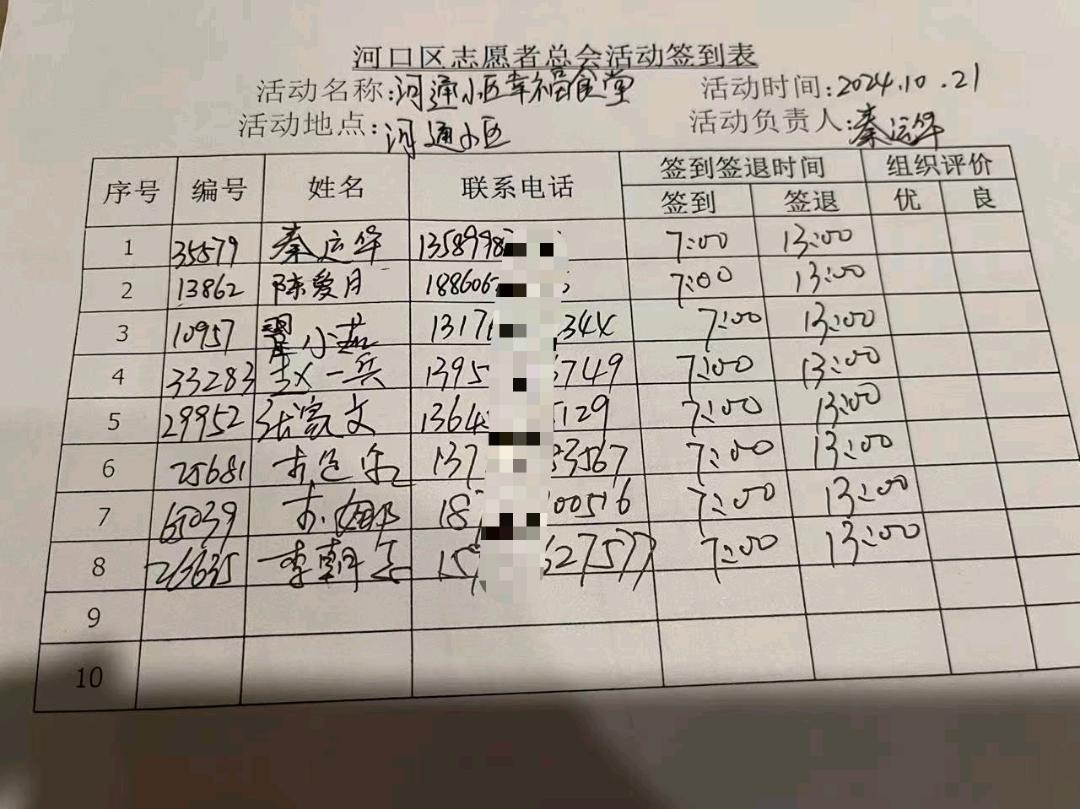 河口区志愿者总会活动签到表
活动名称:河通小区幸福食堂 活动时间:2024.10.21
活动地点:河通小区 活动负责人:秦运华
序号 编号 姓名 联系电话 签到签退时间 组织评价
签到 签退 优 良
1 35579 秦运华 1358998 7:00 13:00
2 13862 陈爱月 188606 7:00 13:00
3 10957 小燕 1317 344 7:00 13:00
4 33283 赵一兵 1395 6749 7:00 13:00
5 29952 张家文 1364 5129 7:00 13:00
6 25681 137 83567 7:00 13:00
7 65039 娜 18 00516 7:00 13:00
8 李朝 15 627577 7:00 13:00
9
10